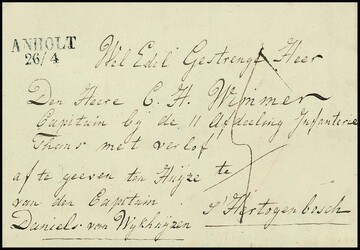 ANHOLT
26/4
Wel Edel Gestrenge Heer
Den Heere C. H. Wimmer
Capitain bij de 11 Afdeeling Infanterie
Thans met verlof
af te geeven ten Huize te
van den Capitain
s Hertogenbosch
Daniels van Wijkhuijzen